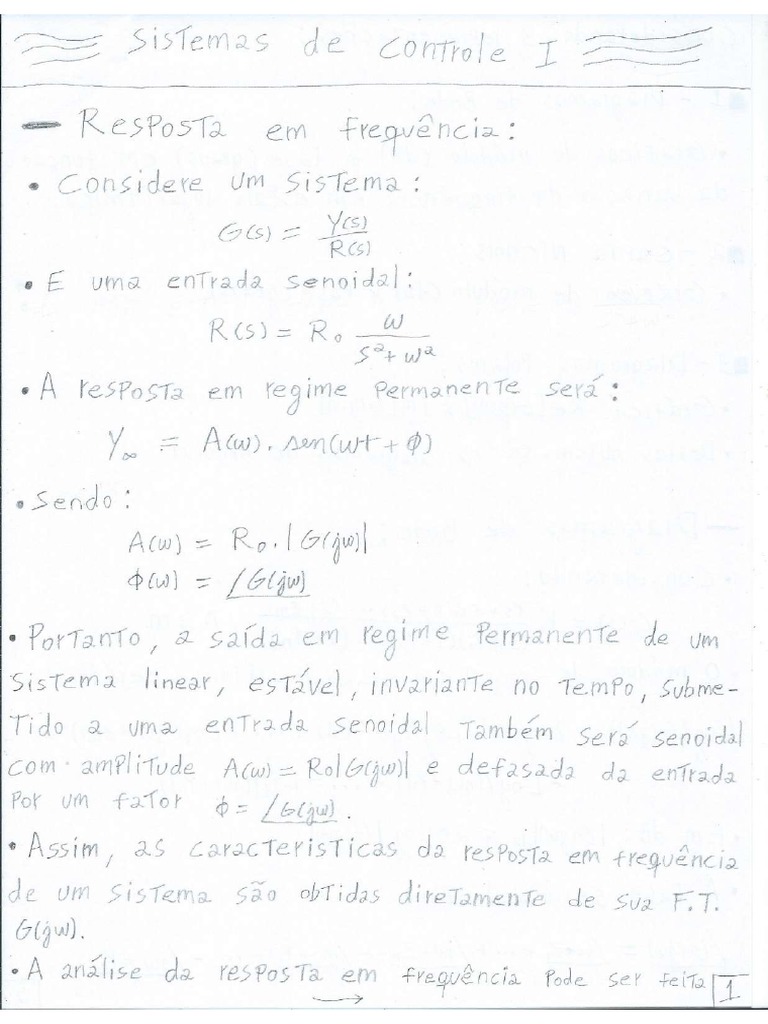 Sistemas de Controle I
- Resposta em frequência:
• Considere um sistema:
G(s) = Y(s)/R(s)
• E uma entrada senoidal:
R(s) = R₀ ω/(s²+ω²)
• A resposta em regime permanente será:
Y∞ = A(ω).sen(ωt + φ)
• Sendo:
A(ω) = R₀.|G(jω)|
φ(ω) = ∠G(jω)
• Portanto, a saída em regime permanente de um
sistema linear, estável, invariante no tempo, subme-
tido a uma entrada senoidal também será senoidal
com amplitude A(ω) = R₀|G(jω)| e defasada da entrada
por um fator φ = ∠G(jω).
• Assim, as caracteristicas da resposta em frequência
de um sistema são obtidas diretamente de sua F.T.
G(jω).
• A análise da resposta em frequência pode ser feita
→ 1